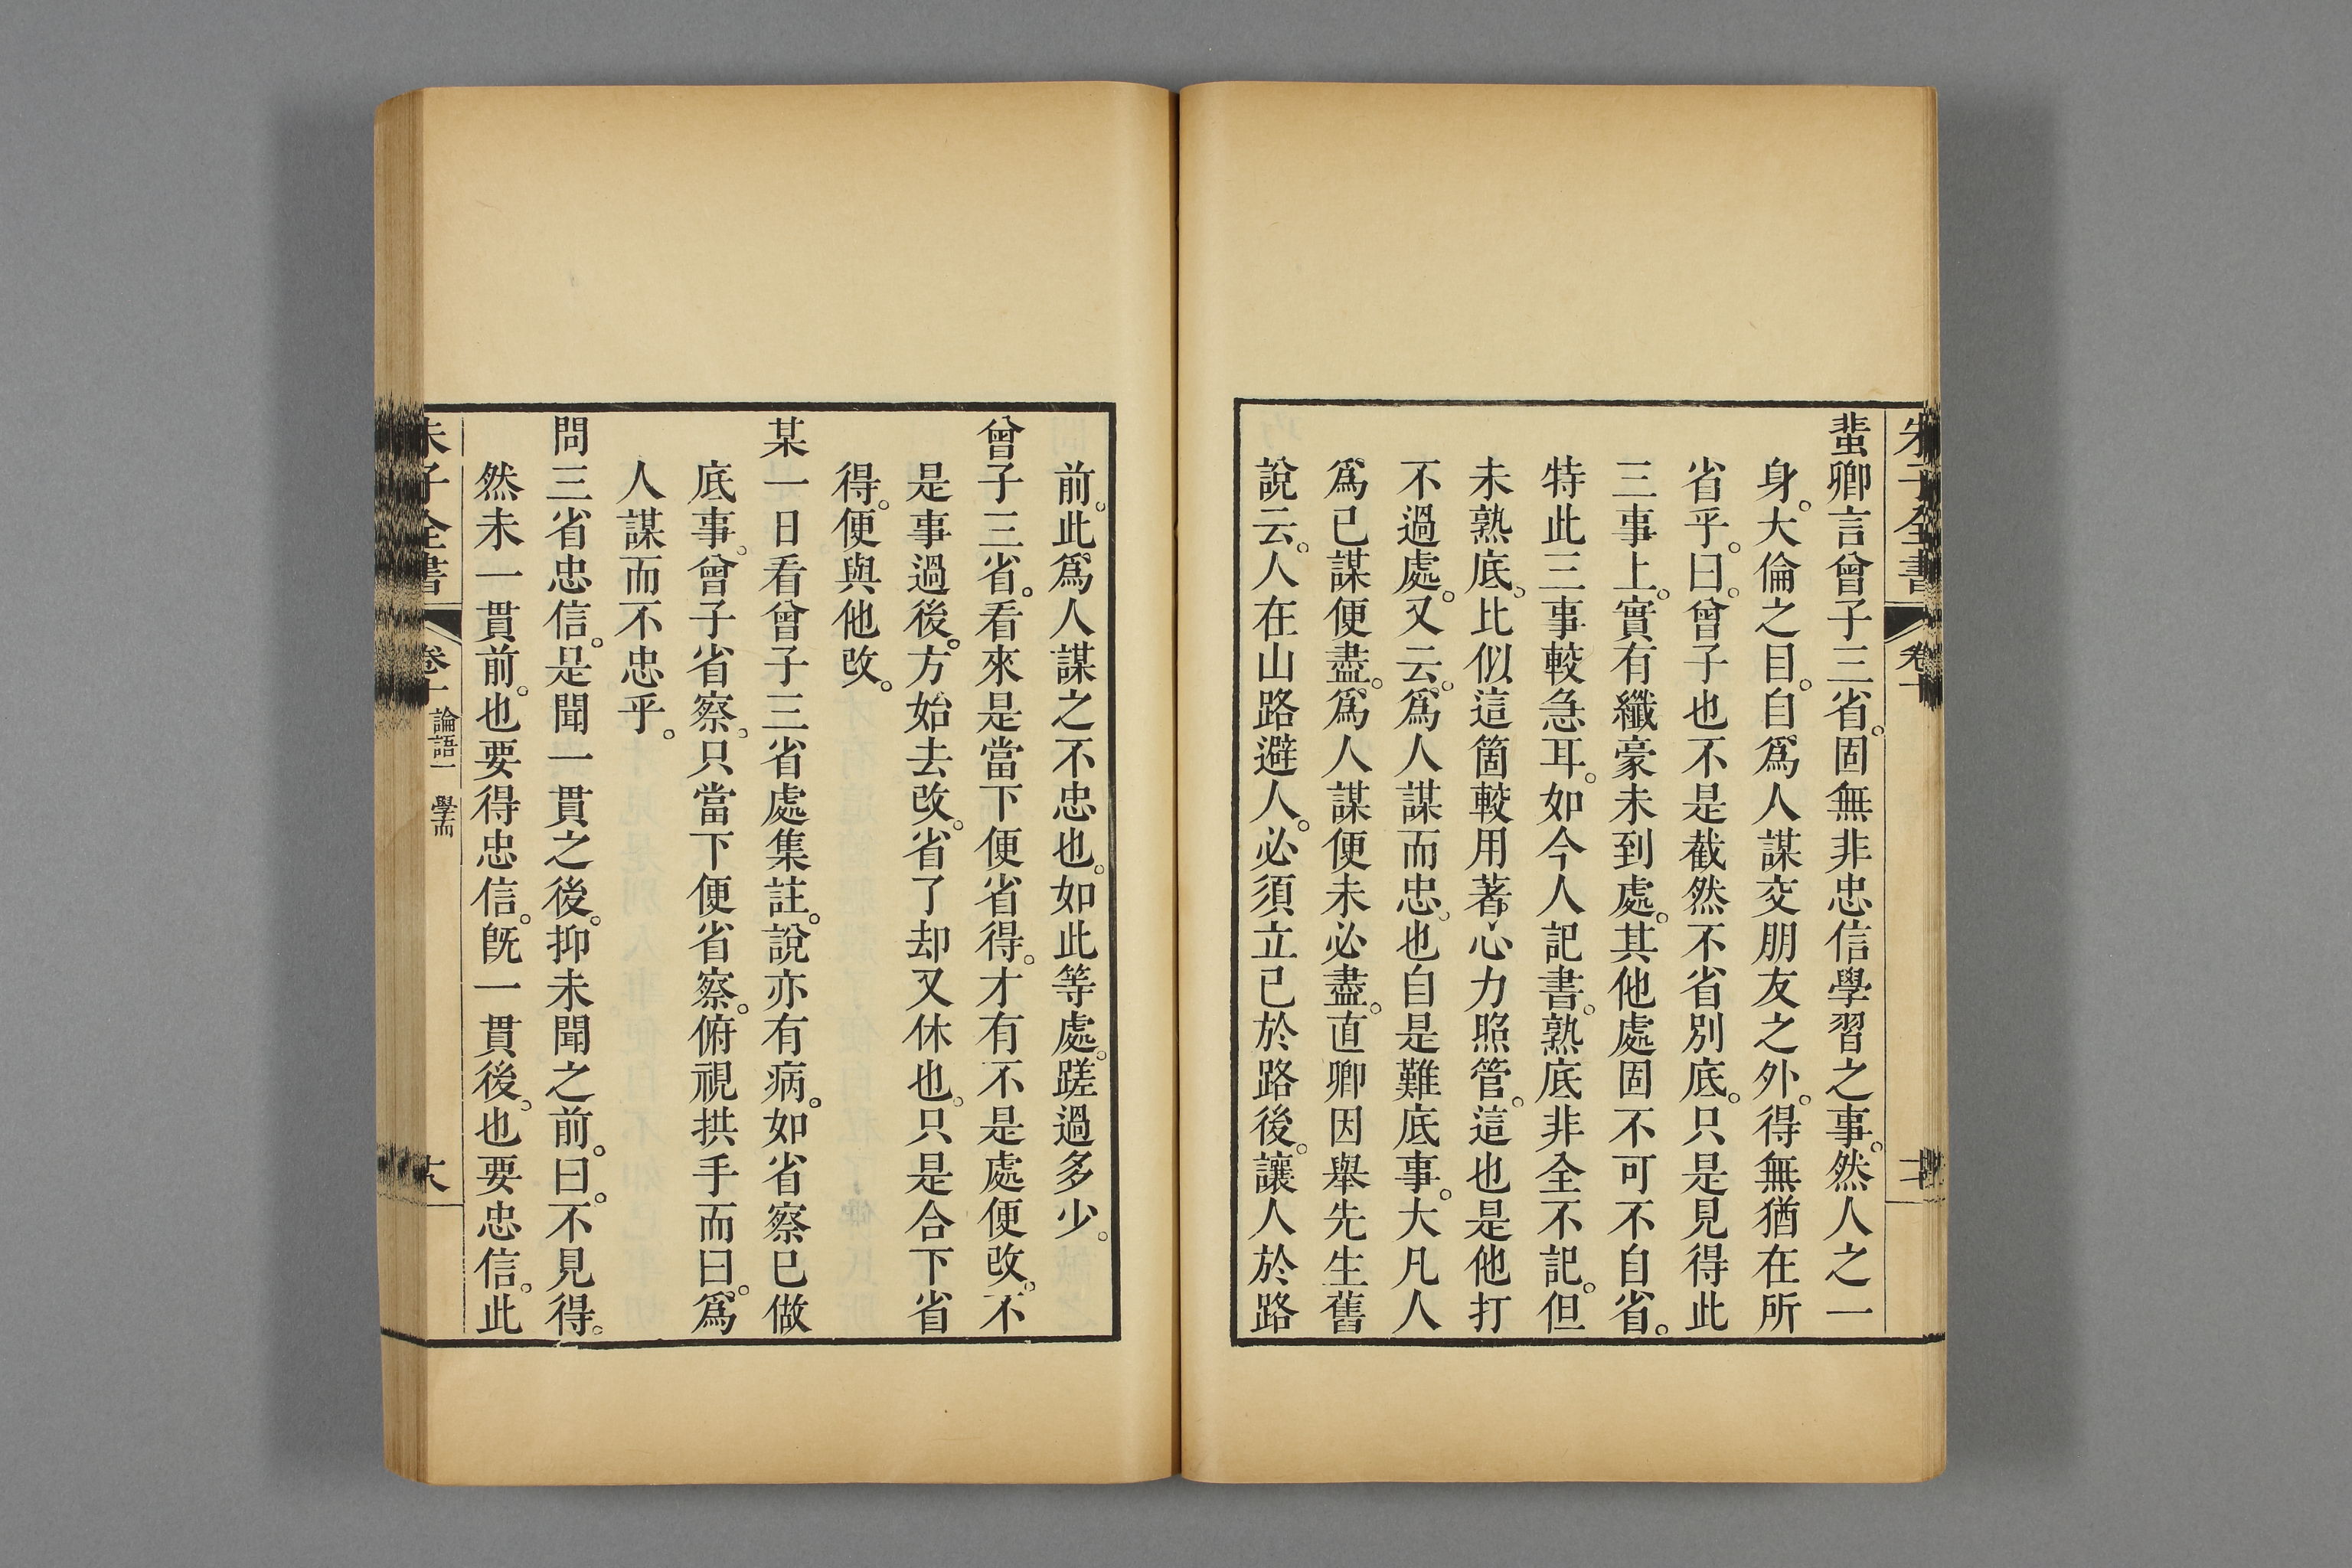 蜚卿言曾子三省。固無非忠信學習之事。然人之一
身。大倫之目。自爲人謀交朋友之外。得無猶在所
省乎。曰。曾子也不是截然不省別底。只是見得此
三事上。實有纖豪未到處。其他處固不可不自省。
特此三事較急耳。如今人記書。熟底非全不記。但
未熟底。比似這箇較用著心力照管。這也是他打
不過處。又云。爲人謀而忠。也自是難底事。大凡人
爲己謀便盡。爲人謀便未必盡。直卿因舉先生舊
說云。人在山路避人。必須立己於路後。讓人於路
前。此爲人謀之不忠也。如此等處。蹉過多少。
曾子三省。看來是當下便省得。才有不是處便改。不
是事過後。方始去改。省了却又休也。只是合下省
得。便與他改。
某一日看曾子三省處集註。說亦有病。如省察已做
底事。曾子省察。只當下便省察。俯視拱手而曰。爲
人謀而不忠乎。
問三省忠信。是聞一貫之後。抑未聞之前。曰。不見得。
然未一貫前。也要得忠信。既一貫後。也要忠信。此
朱子全書
卷十 論語一 學而